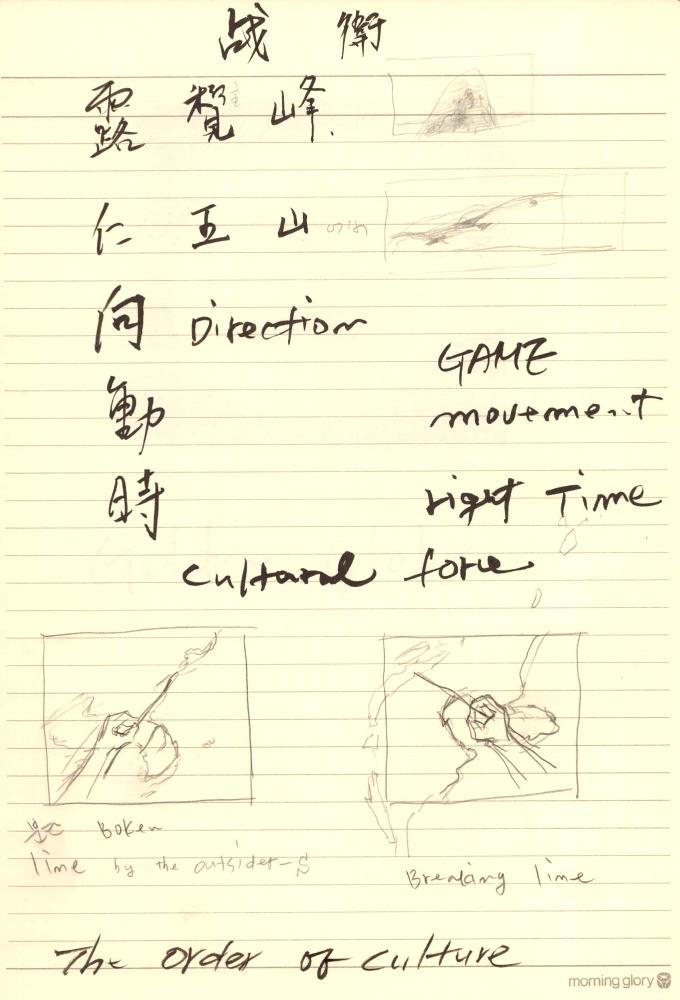 战 衛
露 覺 峰.
仁 王 山
向 Direction
GAME
動 movement
時 right Time
cultural force
Boken
line by the outsider-s
Breaking line
The order of culture
morning glory